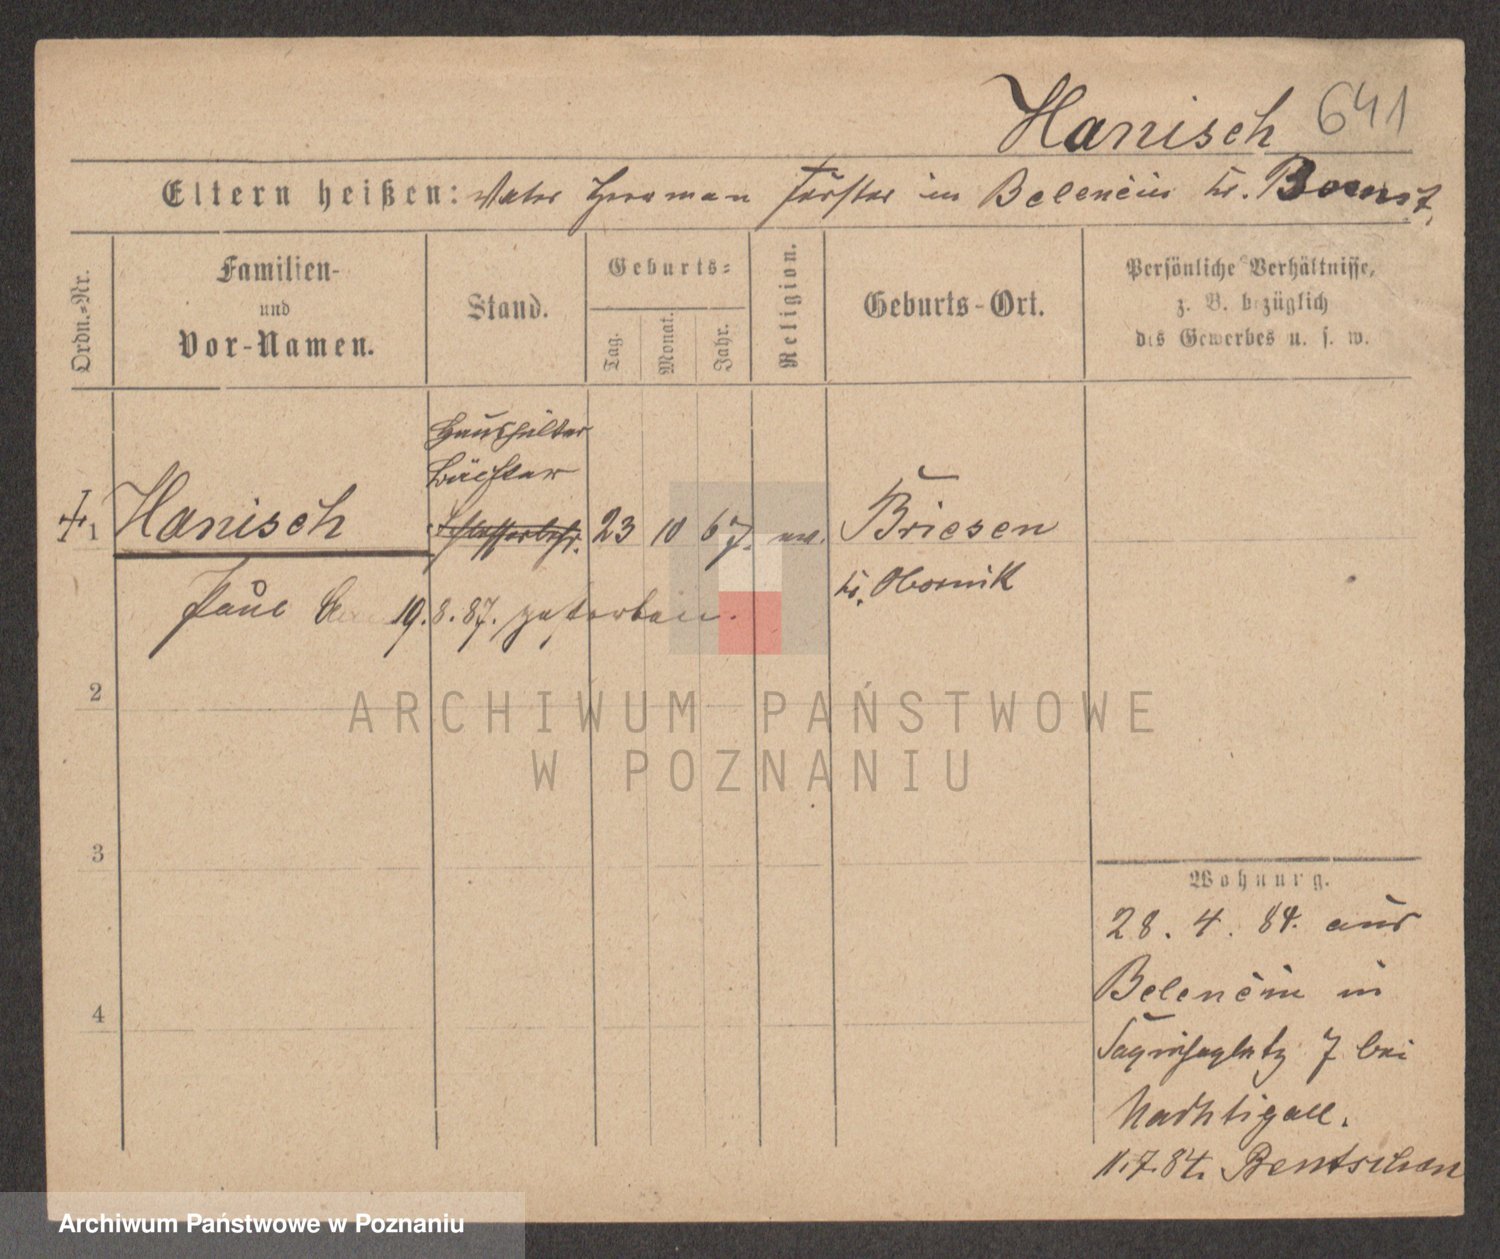 Hanisch 641
Eltern heißen: Vater Herman Förster in Belencin Kr. Bomst,
Ordn.-Nr.
Familien-
und
Vor-Namen.
Stand.
Geburts-
Tag.
Monat.
Jahr.
Religion.
Geburts-Ort.
Persönliche Verhältnisse,
z. B. bezüglich
des Gewerbes u. s. w.
Haushälter
Wächter
1 Hanisch Schlosserlehr. 23 10 67. ev. Briesen
Paul 19. 8. 87. gestorben. Kr. Obornik
2
3
4
Wohnung.
28. 4. 84. aus
Belencin in
Sapiehaplatz 7 bei
Nachtigall.
11.7.84. Bentschen
ARCHIWUM PAŃSTWOWE
W POZNANIU
Archiwum Państwowe w Poznaniu